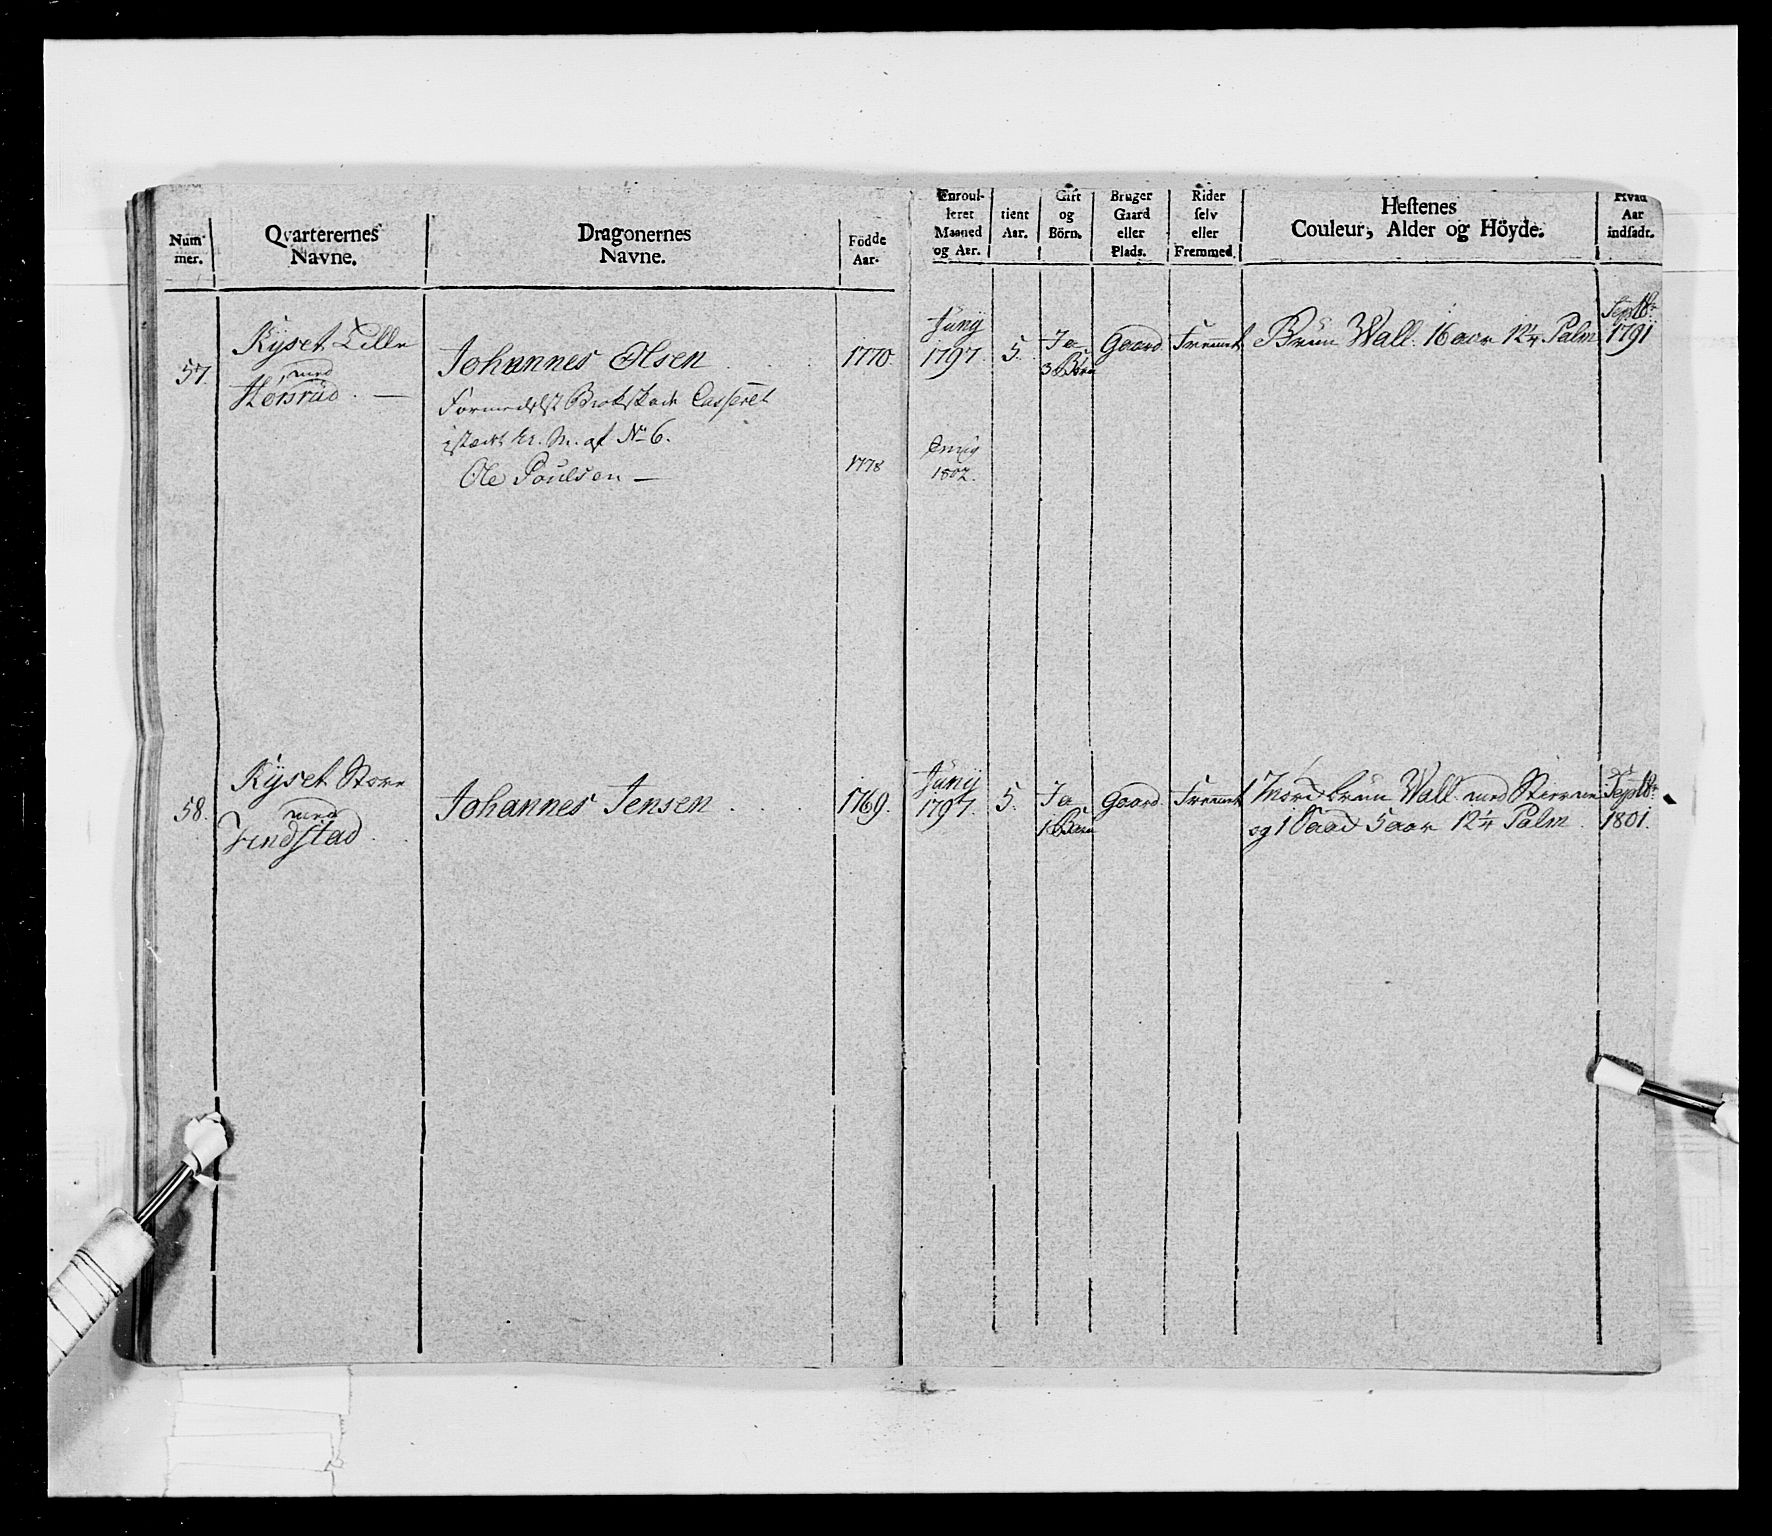 Num-
mer.
Qvarterernes
Navne.
Dragonernes
Navne.
Födde
Aar.
Enroul-
leret
Maaned
og Aar.
tient
Aar.
Gift
og
Börn.
Bruger
Gaard
eller
Plads.
Rider
selv
eller
Fremmed.
Hestenes
Couleur, Alder og Höyde.
Hvad
Aar
indsadt.
57.
Kyset Lille
med
Horsrud. —
Johannes Olsen
1770.
Juny
1797
5.
Ja
3 Börn
Gaard
Fremmet
Brun Wall. 16 aar 12¼ Palm
Septbr
1791
Formedelst Brokskade Casseret
istæd af No 6.
Ole Poulsen —
1778
1802.
58.
Kyset Store
med
Findstad
Johannes Jensen
1769.
Juny
1797.
5.
Ja
1 Barn
Gaard
Fremmet
Mörd brun Wall. med Stierne
og 1 5 aar 12¼ Palm
Septbr
1801.